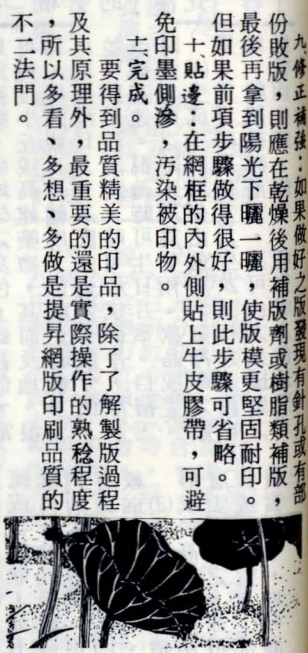 九修正補強：如果做好之版發現有針孔或有部
份敗版，則應在乾燥後用補版劑或樹脂類補版，
最後再拿到陽光下曬一曬，使版模更堅固耐印。
但如果前項步驟做得很好，則此步驟可省略。
十貼邊：在網框的內外側貼上牛皮膠帶，可避
免印墨側滲，汚染被印物。
十一完成。
要得到品質精美的印品，除了了解製版過程
及其原理外，最重要的還是實際操作的熟稔程度
，所以多看、多想、多做是提昇網版印刷品質的
不二法門。